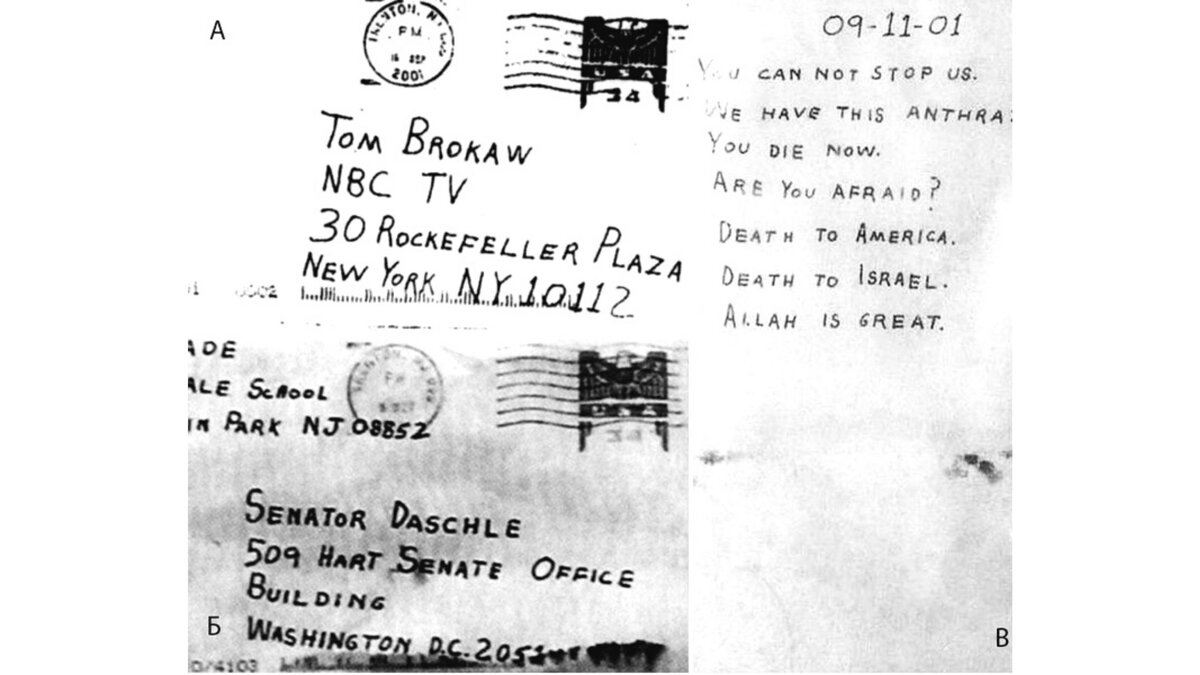 А
TRENTON, NJ
PM
18 SEP
2001
USA
34
TOM BROKAW
NBC TV
30 ROCKEFELLER PLAZA
NEW YORK NY 10112
ADE
ALE SCHOOL
IN PARK NJ 08852
PM
USA
34
SENATOR DASCHLE
509 HART SENATE OFFICE
BUILDING
WASHINGTON D.C. 2051
D/4103
Б
09-11-01
YOU CAN NOT STOP US.
WE HAVE THIS ANTHRA
YOU DIE NOW.
ARE YOU AFRAID?
DEATH TO AMERICA.
DEATH TO ISRAEL.
ALLAH IS GREAT.
В